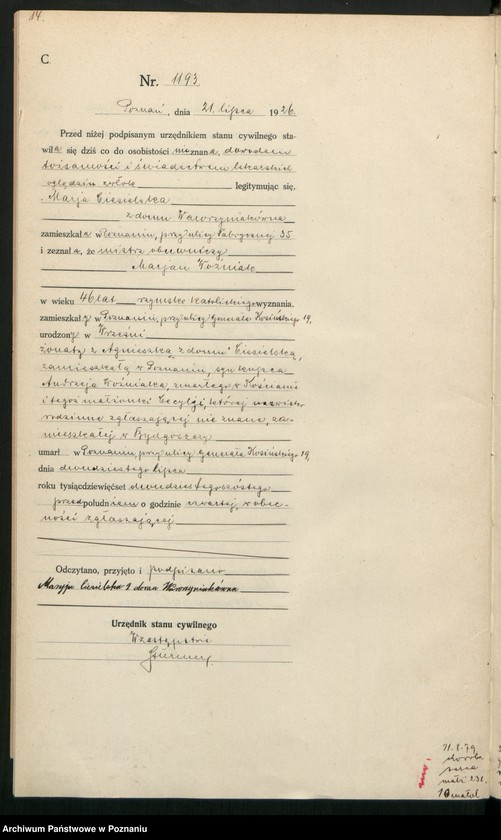 14.
C
Nr. 1193
Poznań, dnia 21. lipca 1926.
Przed niżej podpisanym urzędnikiem stanu cywilnego sta-
wiła się dziś co do osobistości nieznana, dowodem
tożsamości i świadectwem lekarskiem
oględzin zwłok legitymując się.
Marja Ciesielska
z domu Wawrzyniakówna
zamieszkała w Poznaniu, przy ulicy Fabrycznej 35
i zeznała, że mistrz obuwniczy
Marjan Woźniak
w wieku 46 lat rzymsko katolickiego wyznania.
zamieszkały w Poznaniu, przy ulicy Generała Kosińskiego 19,
urodzony w Wrześni
żonaty z Agnieszką z domu Ciesielską,
zamieszkałą w Poznaniu, syn kupca
Andrzeja Woźniaka, zmarłego w Kościanie
i tegoż małżonki Cecylji, której nazwisko
rodzinne zgłaszającej nie znane, za-
mieszkałej w Bydgoszczy
umarł w Poznaniu, przy ulicy Generała Kosińskiego 19,
dnia dwudziestego lipca
roku tysiącdziewięćset dwudziestegoszóstego
przedpołudniem o godzinie czwartej, w obec-
ności zgłaszającej
Odczytano, przyjęto i podpisano
Maryja Ciesielska z doma Wawrzyniakówna
Urzędnik stanu cywilnego
W zastępstwie
21.8.79
choroba
serca
Archiwum Państwowe w Poznaniu